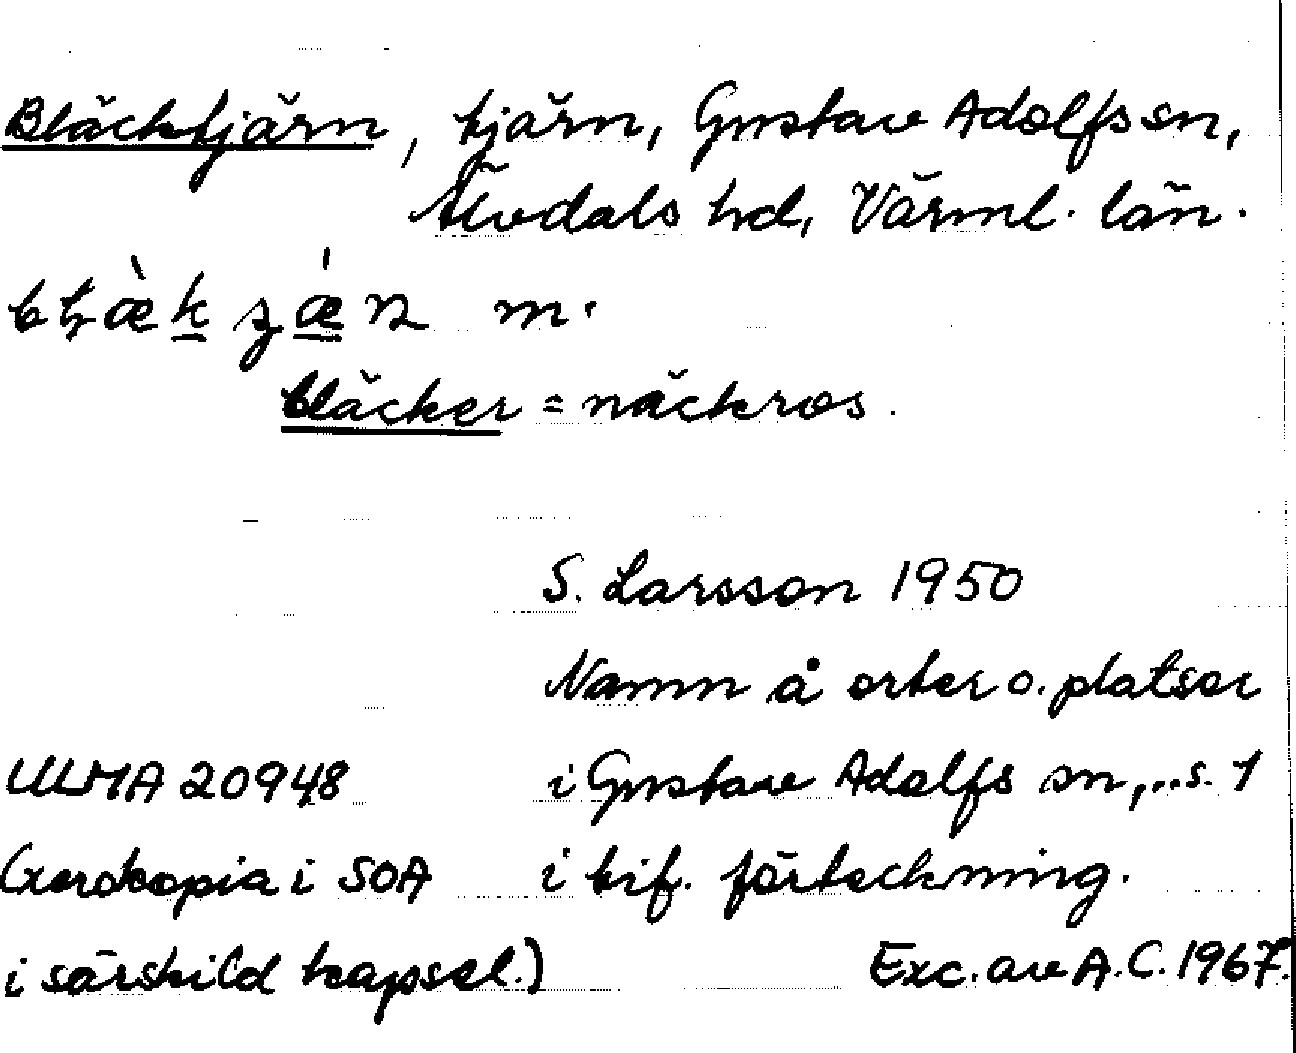 Bläcktjärn, tjärn, Gustav Adolfs sn,
Älvdals hd, Värml. län.
bläcker = näckros.
S. Larsson 1950
Namn å orter o. platser
ULMA 20948 i Gustav Adolfs sn, .. s. 1
(Xerokopia i SOA i tif. förteckning.
i särskild kapsel.) Exc. av A.C. 1967.